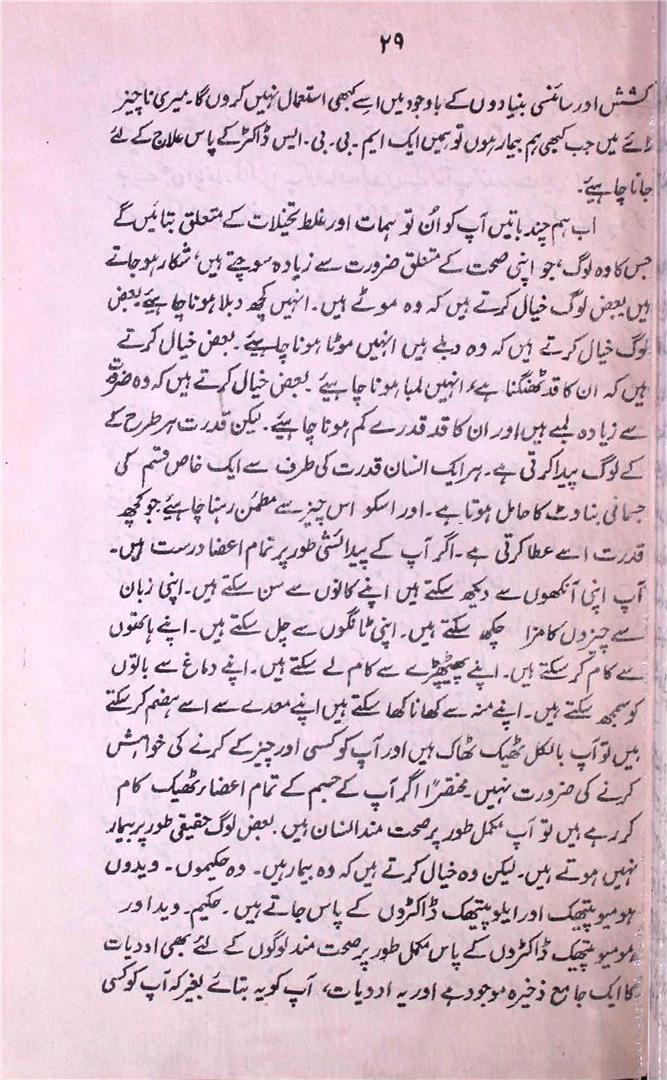 ۲۹
کشش اور سائنسی بنیادوں کے باوجود میں اسے کبھی استعمال نہیں کروں گا۔ میری ناچیز
رائے میں جب کبھی ہم بیمار ہوں تو ہمیں ایک ایم۔ بی۔ بی۔ ایس ڈاکٹر کے پاس علاج کے لئے
جانا چاہیئے۔
اب ہم چند باتیں آپ کو اُن توہمات اور غلط تخیلات کے متعلق بتائیں گے
جس کا وہ لوگ، جو اپنی صحت کے متعلق ضرورت سے زیادہ سوچتے ہیں، شکار ہو جاتے
ہیں بعض لوگ خیال کرتے ہیں کہ وہ موٹے ہیں۔ انہیں کچھ دبلا ہونا چاہیئے بعض
لوگ خیال کرتے ہیں کہ وہ دبلے ہیں انہیں موٹا ہونا چاہیئے۔ بعض خیال کرتے
ہیں کہ ان کا قد ٹھنگنا ہے، انہیں لمبا ہونا چاہیئے۔ بعض خیال کرتے ہیں کہ وہ ضرورت
سے زیادہ لمبے ہیں اور ان کا قد قدرے کم ہونا چاہیئے۔ لیکن قدرت ہر طرح کے
کے لوگ پیدا کرتی ہے۔ ہر ایک انسان قدرت کی طرف سے ایک خاص قسم کی
جسمانی بناوٹ کا حامل ہوتا ہے۔ اور اسکو اس چیز سے مطمئن رہنا چاہیئے جو کچھ
قدرت اسے عطا کرتی ہے۔ اگر آپ کے پیدائشی طور پر تمام اعضا درست ہیں۔
آپ اپنی آنکھوں سے دیکھ سکتے ہیں اپنے کانوں سے سن سکتے ہیں۔ اپنی زبان
سے چیزوں کا مزا چکھ سکتے ہیں۔ اپنی ٹانگوں سے چل سکتے ہیں۔ اپنے ہاتھوں
سے کام کر سکتے ہیں۔ اپنے پھیپھڑے سے کام لے سکتے ہیں۔ اپنے دماغ سے باتوں
کو سمجھ سکتے ہیں۔ اپنے منہ سے کھانا کھا سکتے ہیں اپنے معدے سے اسے ہضم کر سکتے
ہیں تو آپ بالکل ٹھیک ٹھاک ہیں اور آپ کو کسی اور چیز کے کرنے کی خواہش
کرنے کی ضرورت نہیں۔ مختصراً اگر آپ کے جسم کے تمام اعضاء ٹھیک کام
کر رہے ہیں تو آپ مکمل طور پر صحت مند انسان ہیں۔ بعض لوگ حقیقی طور پر بیمار
نہیں ہوتے ہیں۔ لیکن وہ خیال کرتے ہیں کہ وہ بیمار ہیں۔ وہ حکیموں۔ ویدوں
ہومیوپیتھیک اور ایلوپیتھیک ڈاکٹروں کے پاس جاتے ہیں۔ حکیم۔ وید اور
ہومیوپیتھیک ڈاکٹروں کے پاس مکمل طور پر صحت مند لوگوں کے لئے بھی ادویات
کا ایک جامع ذخیرہ موجود ہے اور یہ ادویات، آپ کو یہ بتائے بغیر کہ آپ کو کسی